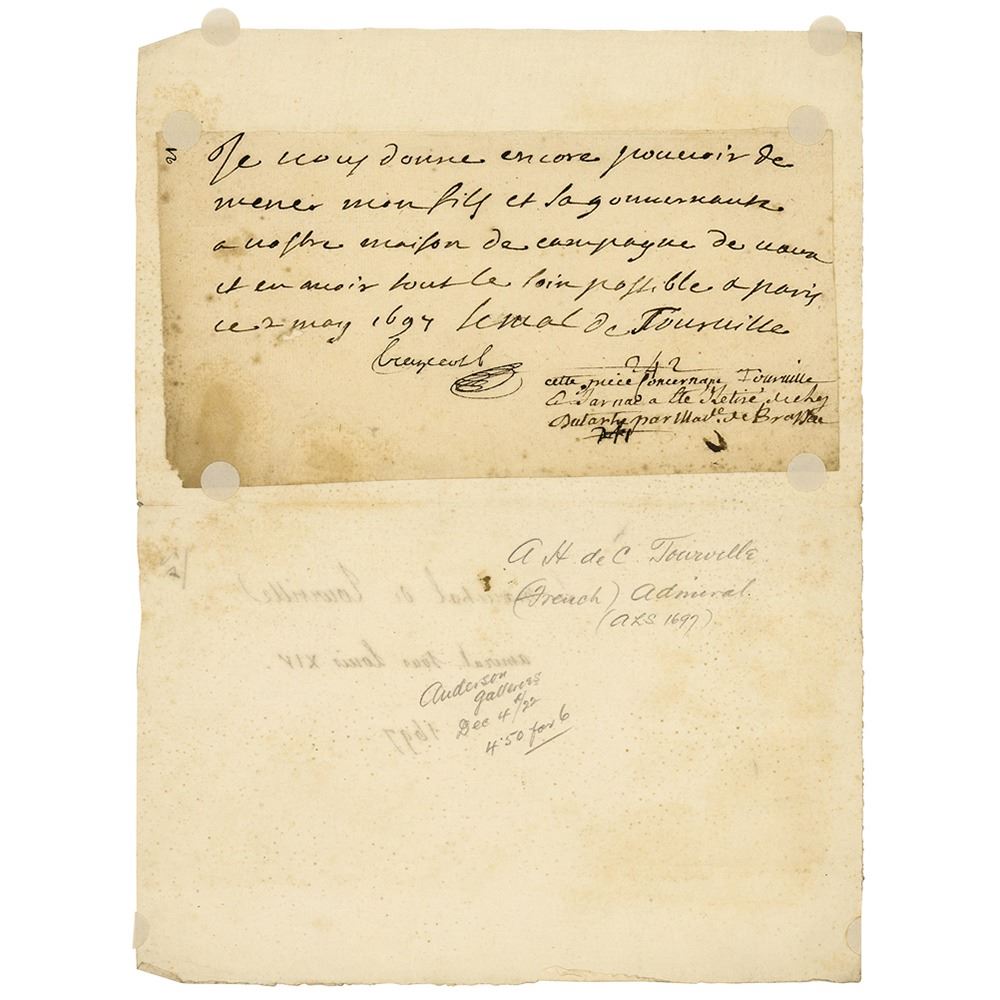 Je vous donne encore pouvoir de
mener mon fils et sa gouvernante
a nostre maison de campagne de vaux
et en avoir tout le soin possible a paris
ce 2 may 1697 le mal de Tourville
242
cette piece Concernant Tourville
a été Retiré de chez
par Made. de Brassac
A H de C Tourville
(French) Admiral.
(ALS 1697)
maréchal de Tourville
amiral sous Louis XIV.
1697
Anderson
galleries
Dec 4th/22
4.50 for 6